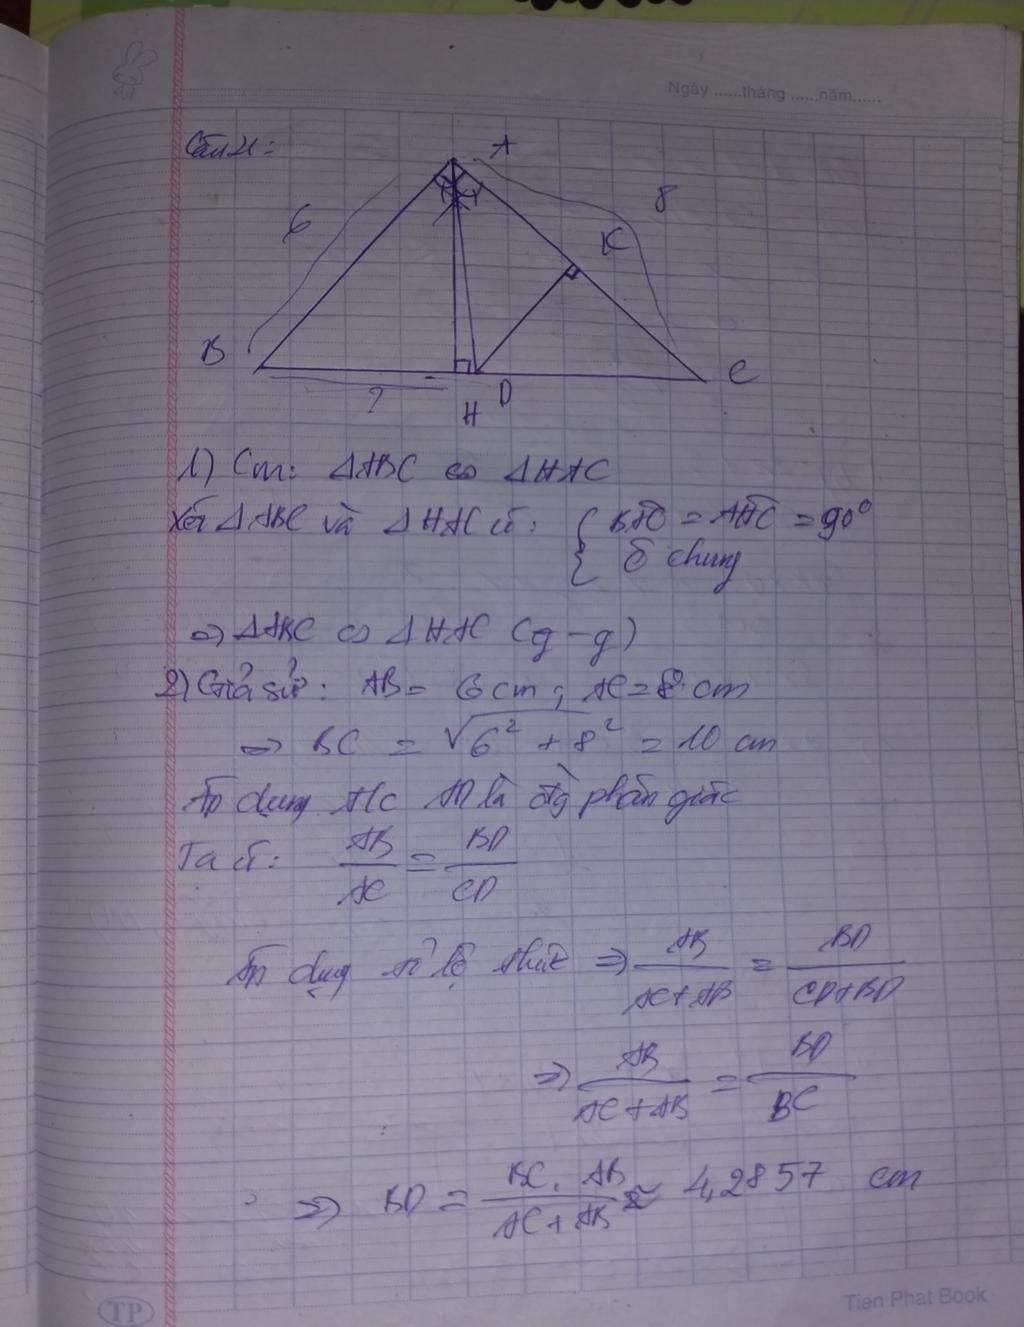 Ngày ......tháng ......năm......
Câu 4:
A
6
8
K
B
C
?
H
D
1) Cm: ΔABC ∽ ΔHAC
Xét ΔABC và ΔHAC có: { BÂC = AĤC = 90°
Ĉ chung
=> ΔABC ∽ ΔHAC (g-g)
2) Giả sử: AB = 6cm; AC = 8 cm
=> BC = √(6² + 8²) = 10 cm
Áp dụng t/c AD là đg phân giác
Ta có: AB/AC = BD/CD
Áp dụng tỉ lệ thức => AB/(AC+AB) = BD/(CD+BD)
=> AB/(AC+AB) = BD/BC
=> BD = (BC.AB)/(AC+AB) ≈ 4,2857 cm
TP
Tien Phat Book